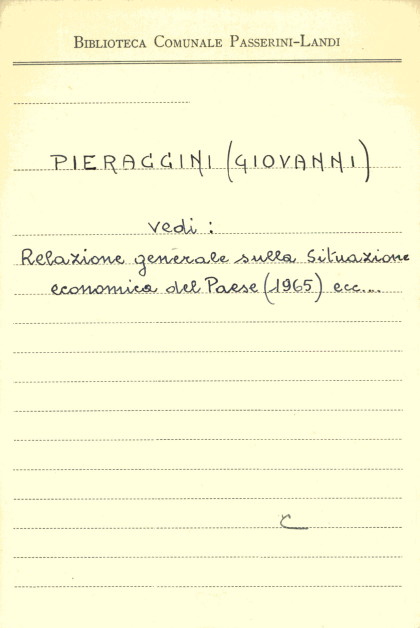 BIBLIOTECA COMUNALE PASSERINI-LANDI
PIERAGGINI (GIOVANNI)
vedi :
Relazione generale sulla Situazione
economica del Paese (1965) ecc...
C